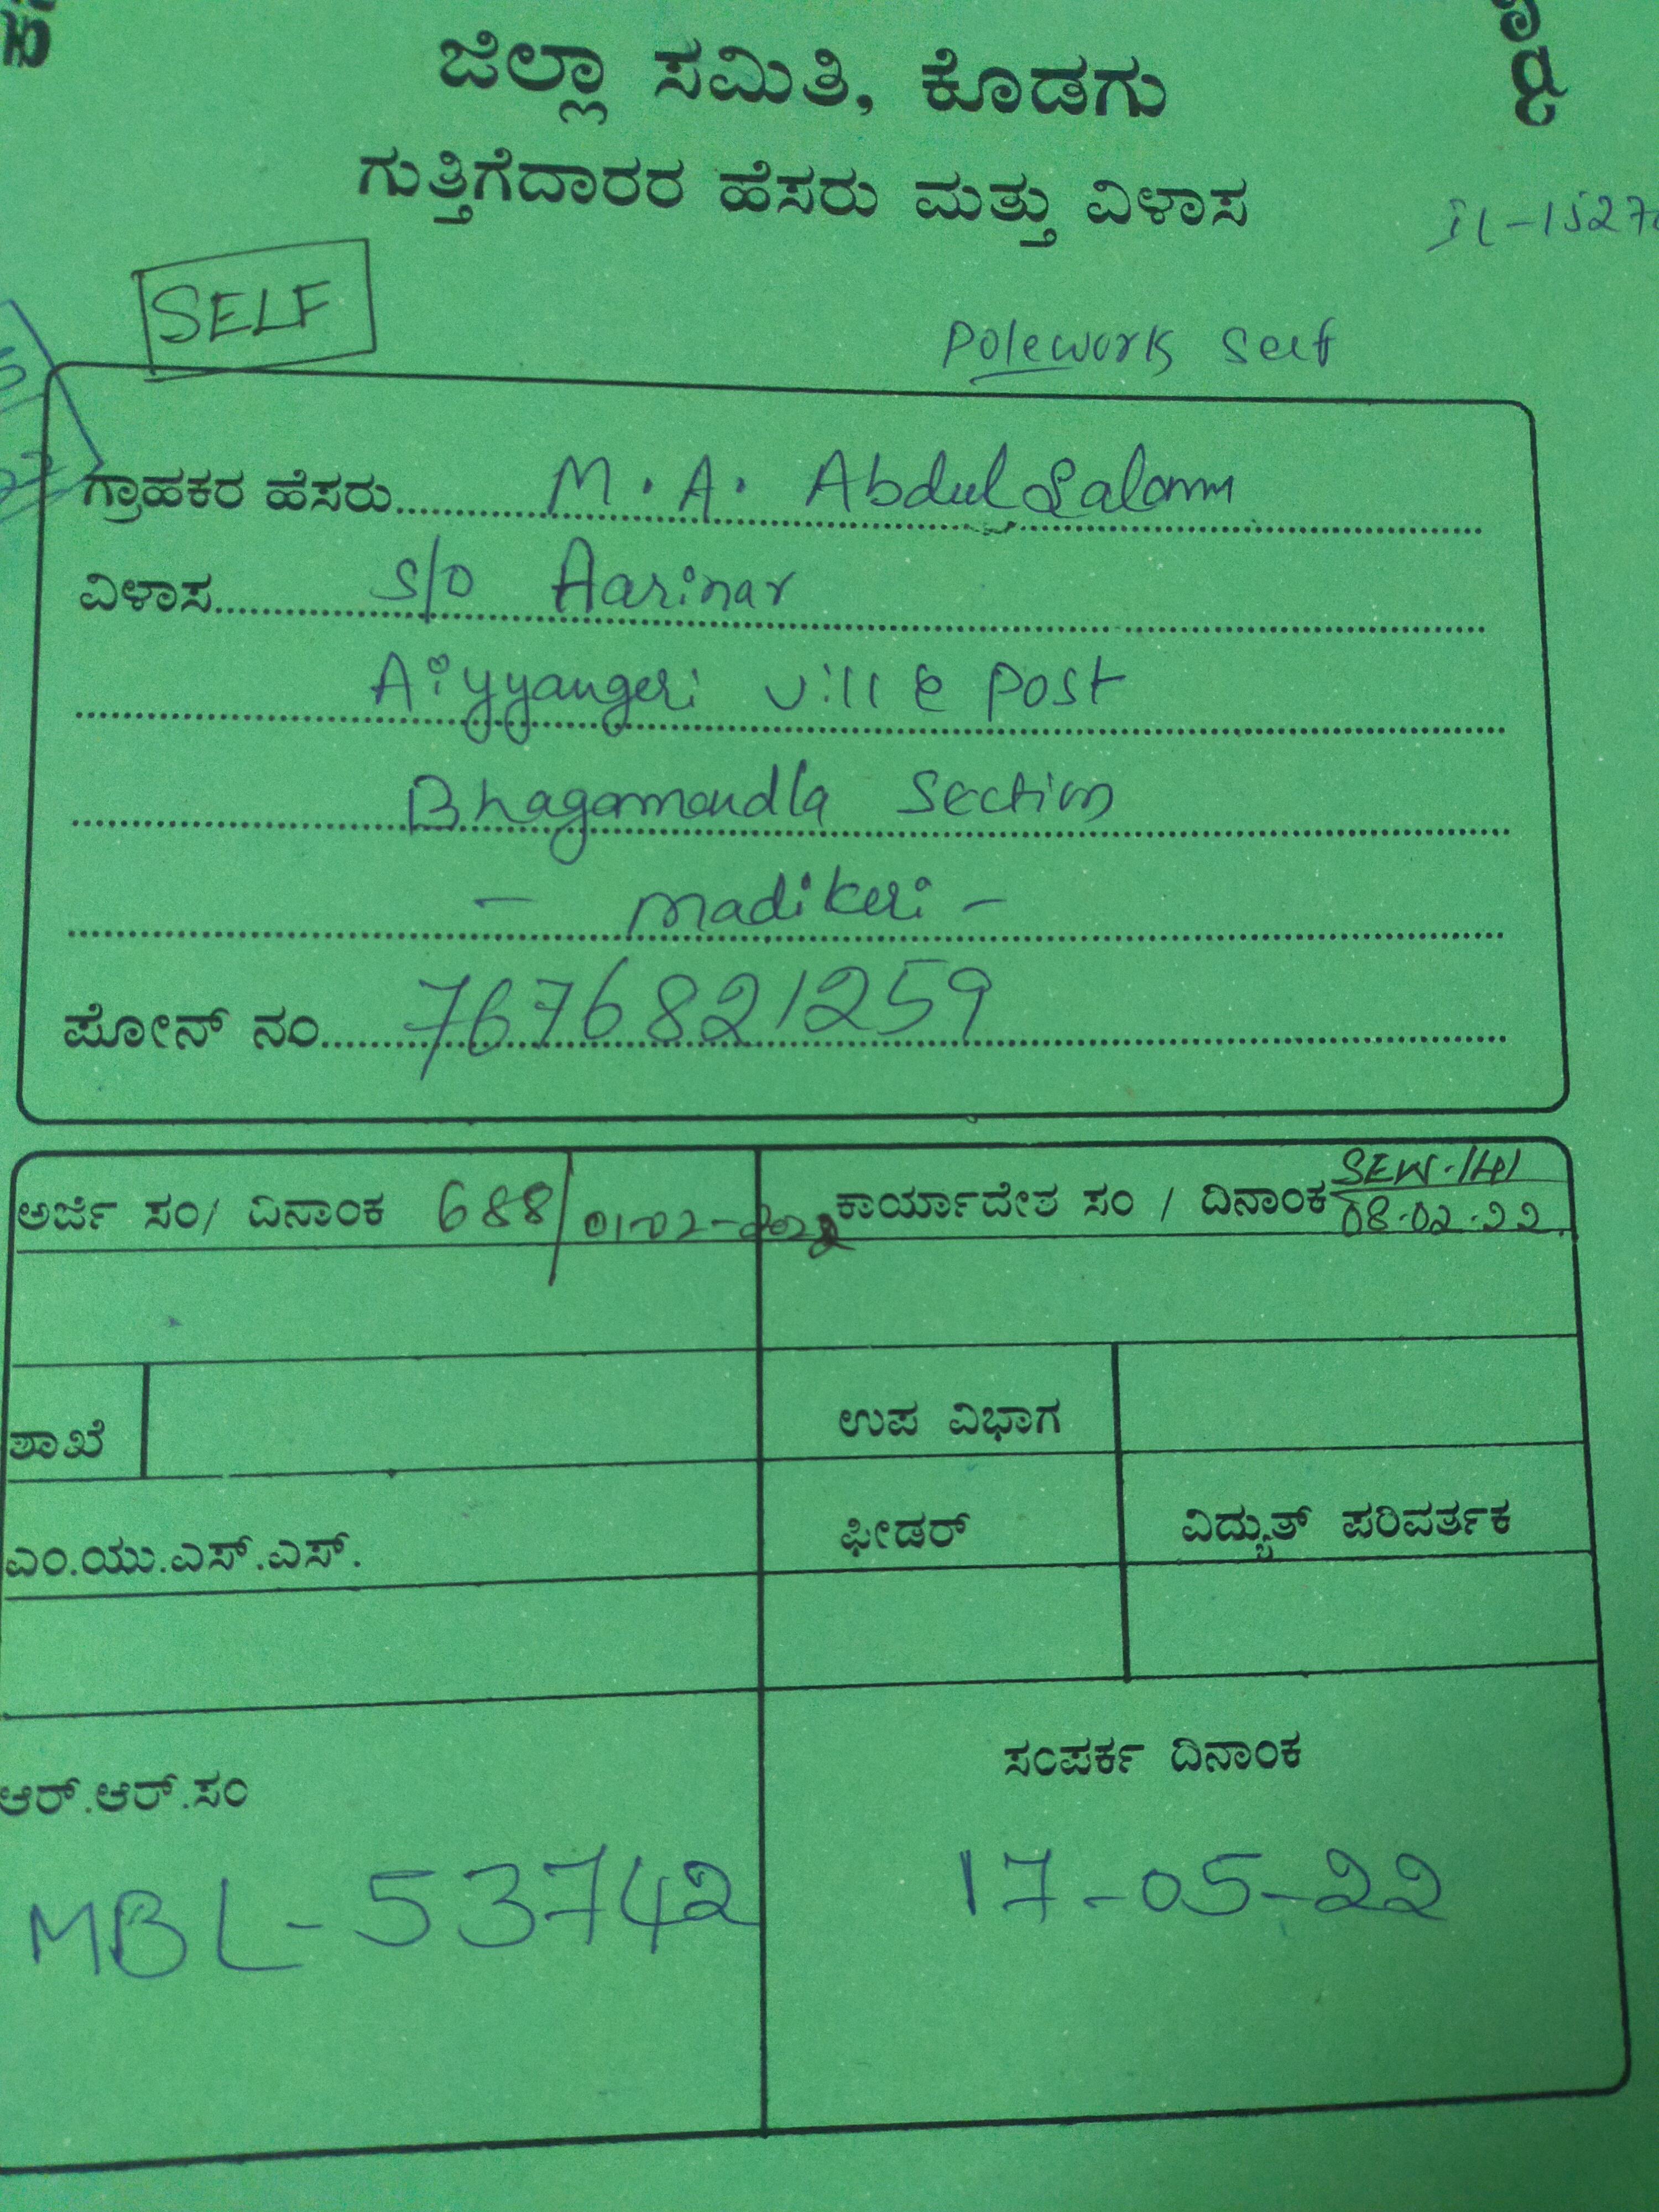 ಜಿಲ್ಲಾ ಸಮಿತಿ, ಕೊಡಗು
ಗುತ್ತಿಗೆದಾರರ ಹೆಸರು ಮತ್ತು ವಿಳಾಸ
SELF
Polework Self
ಗ್ರಾಹಕರ ಹೆಸರು M. A. Abdul Salam
ವಿಳಾಸ S/O Aarinar
Aiyyangeri vill & Post
Bhagamandla Section
- madikeri -
ಪೋನ್ ನಂ 7676821259
ಅರ್ಜಿ ಸಂ/ ದಿನಾಂಕ 688/01-02-2022 ಕಾರ್ಯಾದೇಶ ಸಂ / ದಿನಾಂಕ SEW-141
08.02.22.
ಶಾಖೆ ಉಪ ವಿಭಾಗ
ಎಂ.ಯು.ಎಸ್.ಎಸ್. ಫೀಡರ್ ವಿದ್ಯುತ್ ಪರಿವರ್ತಕ
ಆರ್.ಆರ್.ಸಂ ಸಂಪರ್ಕ ದಿನಾಂಕ
MBL-53742 17-05-22